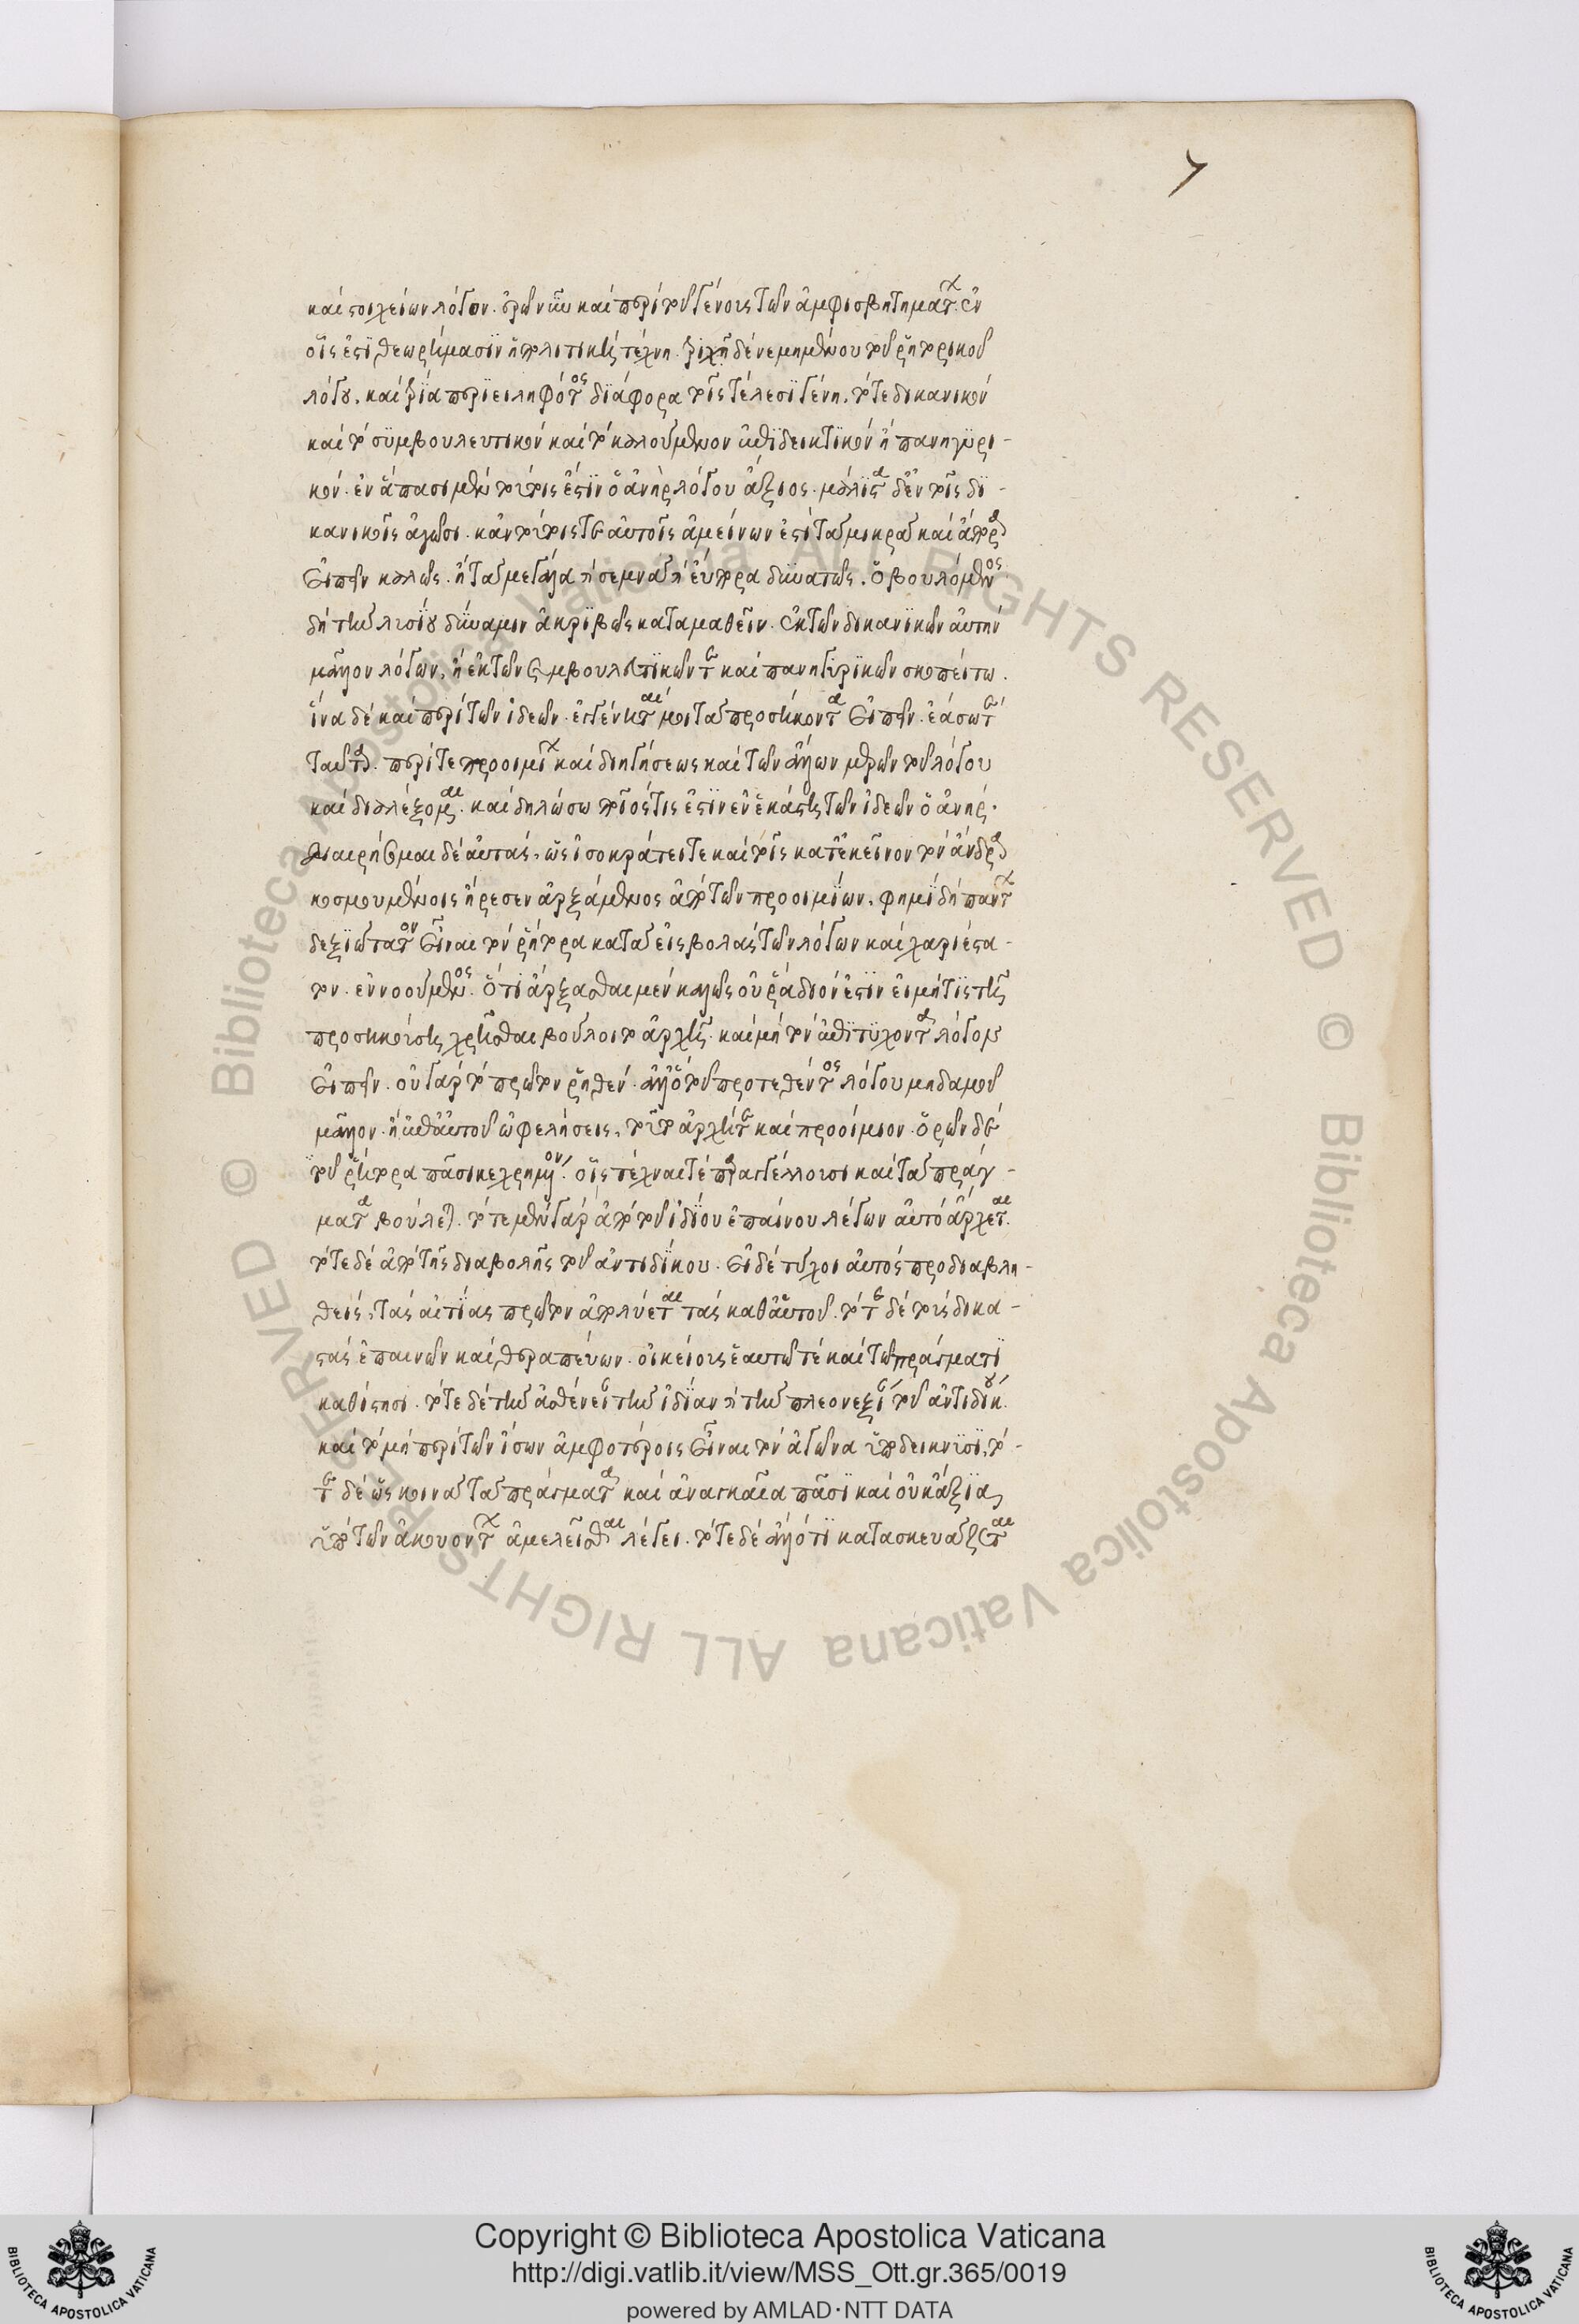 7
καὶ στοιχείων λόγον. ἐρῶ νῦν καὶ περὶ τοῦ γένους τῶν ἀμφισβητημάτων. ἐν
οἷς ἐστὶ θεωρήμασιν ἡ πολιτικῆς τέχνη. τριχῆ δὲ νενεμημένου τοῦ ῥητορικοῦ
λόγου. καὶ τρία περιειληφότος διάφορα τοῖς τέλεσι γένη. τό τε δικανικὸν
καὶ τὸ συμβουλευτικὸν καὶ τὸ καλούμενον ἐπιδεικτικὸν ἢ πανηγυρι-
κόν. ἐν ἅπασι μὲν τούτοις ἐστὶν ὁ ἀνὴρ λόγου ἄξιος. μάλιστα δ' ἐν τοῖς δι-
κανικοῖς ἀγῶσι. κἀν τούτοις τε αὐτοῖς ἀμείνων ἐστὶ τὰ μικρὰ καὶ ἄπορα
εἰπεῖν καλῶς. ἢ τὰ μεγάλα ἢ σεμνὰ ἢ εὔπορα δυνατῶς. ὁ βουλόμενος
δὴ τὴν λυσίου δύναμιν ἀκριβῶς καταμαθεῖν. ἐκ τῶν δικανικῶν αὐτὴν
μᾶλλον λόγων. ἢ ἐκ τῶν συμβουλευτικῶν τε καὶ πανηγυρικῶν σκοπείτω.
ἵνα δὲ καὶ περὶ τῶν ἰδεῶν. ἐγγένηται μοι τὰ προσήκοντα εἰπεῖν. ἐάσω τε
ταῦτα. περί τε προοιμίων καὶ διηγήσεως καὶ τῶν ἄλλων μερῶν τοῦ λόγου
καὶ διαλέξομαι. καὶ δηλώσω ποῖός τις ἐστὶν ἐν ἑκάστῃ τῶν ἰδεῶν ὁ ἀνήρ.
διαιρήσομαι δὲ αὐτάς. ὡς ἰσοκράτει τε καὶ τοῖς κατ' ἐκεῖνον τὸν ἄνδρα
κοσμουμένοις ἤρεσεν ἀρξάμενος ἀπὸ τῶν προοιμίων. φημὶ δὴ πάντων
δεξιώτατον εἶναι τὸν ῥήτορα κατὰ εἰσβολὰς τῶν λόγων καὶ χαριέστα-
τον. ἐννοούμενος. ὅτι ἄρξασθαι μὲν καλῶς οὐ ῥᾴδιόν ἐστιν εἰ μή τις τῇ
προσηκούσῃ χρῆσθαι βούλοιτο ἀρχῇ. καὶ μὴ τὸν ἐπιτυχόντα λόγον
εἰπεῖν. οὐ γὰρ τὸ πρῶτον ῥηθέν. ἀλλ' ὃ τοῦ προτεθέντος λόγου μηδαμοῦ
μᾶλλον. ἢ ἐπ' αὐτοῦ ὠφελήσεις. τοῦτο ἀρχή τε καὶ προοίμιον. ὁρῶν δὲ
τοῦ ῥήτορα πᾶσι κεχρημένον. οἷς τέχναι τέ παραγγέλλουσι καὶ τὰ πράγ-
ματα βούλεται. τότε μὲν γὰρ ἀπὸ τοῦ ἰδίου ἐπαίνου λέγων αὐτὸ ἄρχεται.
τότε δὲ ἀπὸ τῆς διαβολῆς τοῦ ἀντιδίκου. εἰ δὲ τύχοι αὐτὸς προδιαβλη-
θείς. τὰς αἰτίας πρῶτον ἀπολύεται τὰς καθ' αὑτοῦ. τότε δὲ τοὺς δικα-
στὰς ἐπαινῶν καὶ θεραπεύων. οἰκείους ἑαυτῷ τε καὶ τῷ πράγματι
καθίστησι. τότε δὲ τὴν ἀσθένειαν τὴν ἰδίαν ἢ τὴν πλεονεξίαν τοῦ ἀντιδίκου.
καὶ τὸ μὴ περὶ τῶν ἴσων ἀμφοτέροις εἶναι τὸν ἀγῶνα ὑποδείκνυσι. τό-
τε δὲ ὡς κοινὰ τὰ πράγματα καὶ ἀναγκαῖα πᾶσι καὶ οὐκ ἄξια
ὑπὸ τῶν ἀκουόντων ἀμελεῖσθαι λέγει. τότε δὲ ἄλλο τι κατασκευάζεται
Copyright © Biblioteca Apostolica Vaticana
http://digi.vatlib.it/view/MSS_Ott.gr.365/0019
powered by AMLAD·NTT DATA